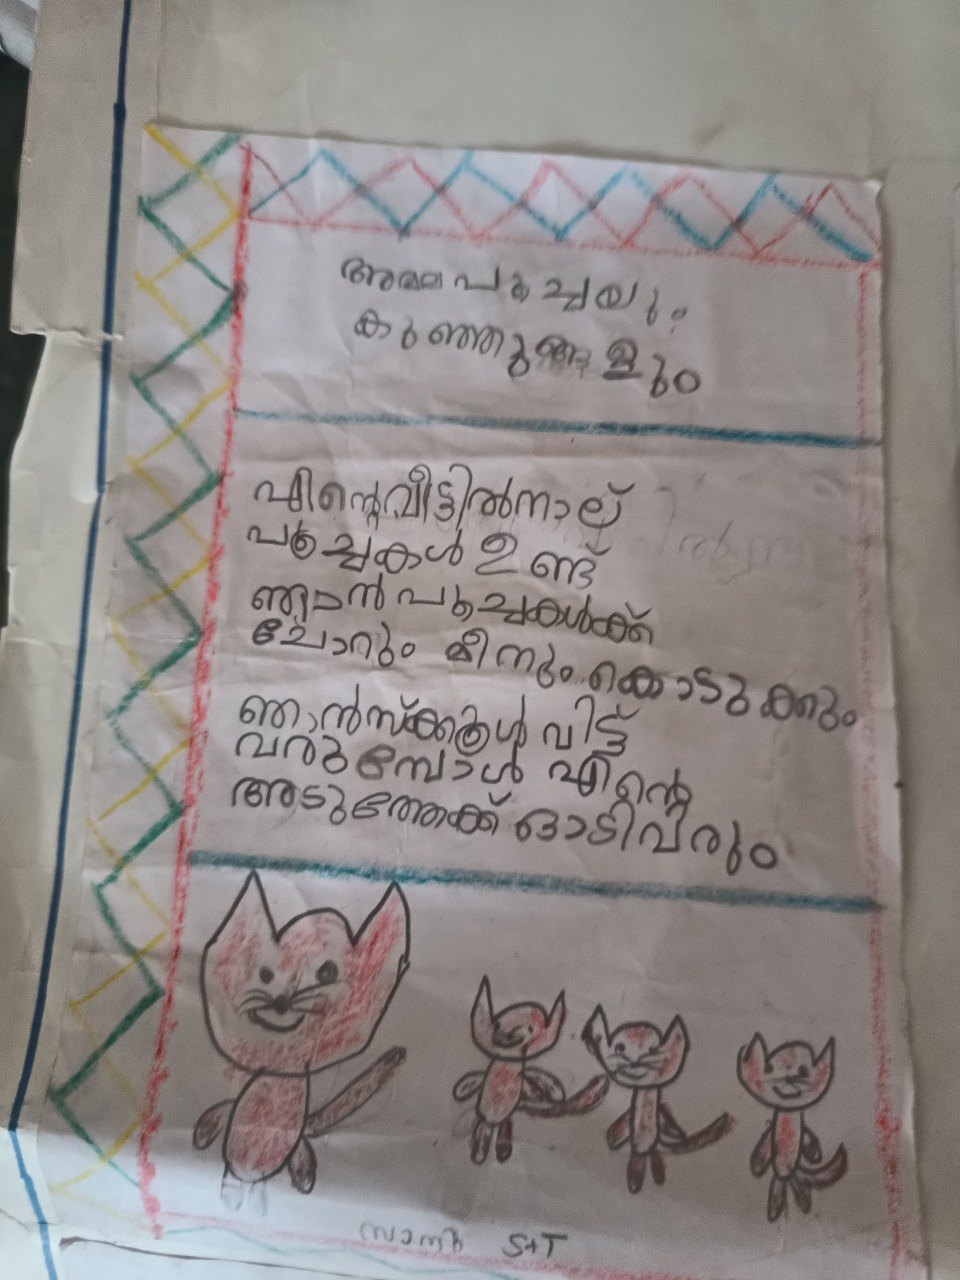 അമ്മ പൂച്ചയും
കുഞ്ഞുങ്ങളും
എന്റെ വീട്ടിൽ നാല്
പൂച്ചകൾ ഉണ്ട്
ഞാൻ പൂച്ചകൾക്ക്
ചോറും മീനും കൊടുക്കും
ഞാൻ സ്ക്കൂൾ വിട്ട്
വരുമ്പോൾ എന്റെ
അടുത്തേക്ക് ഓടിവരും